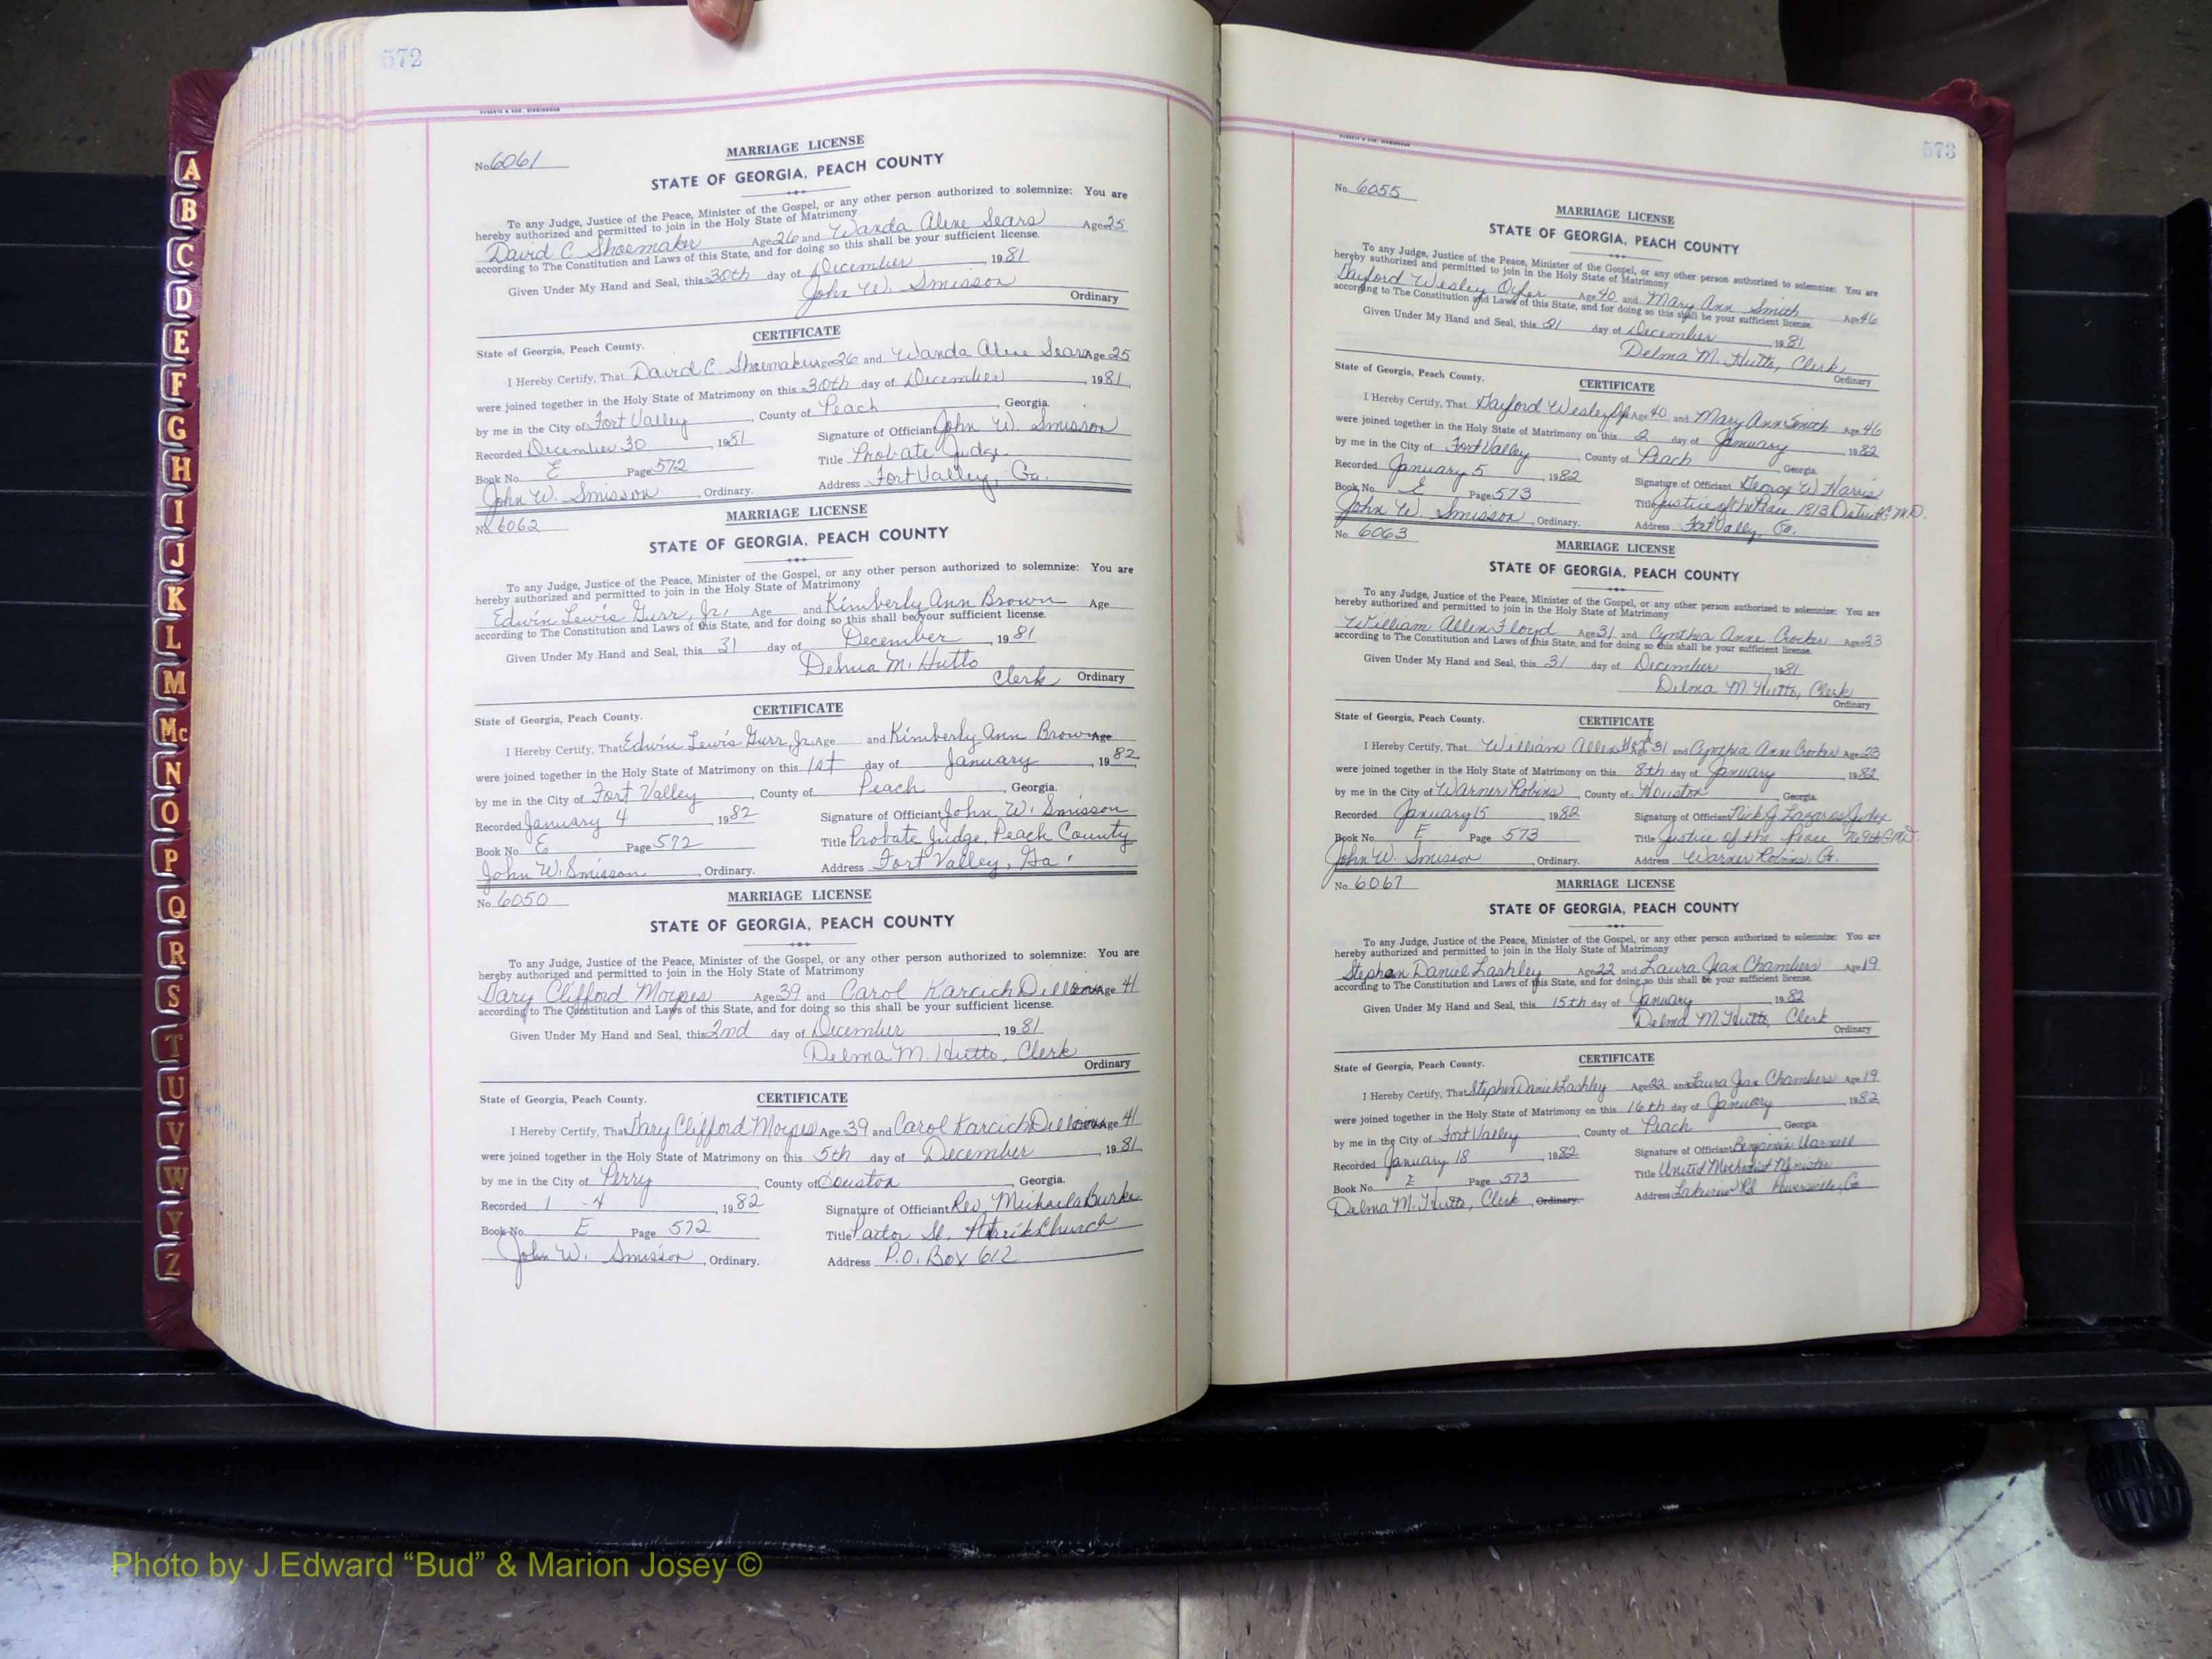 572
MARRIAGE LICENSE
No. 6061
STATE OF GEORGIA, PEACH COUNTY
To any Judge, Justice of the Peace, Minister of the Gospel, or any other person authorized to solemnize: You are
hereby authorized and permitted to join in the Holy State of Matrimony
David C. Shoemaker Age 26 and Wanda Aline Sears Age 25
according to The Constitution and Laws of this State, and for doing so this shall be your sufficient license.
Given Under My Hand and Seal, this 30th day of December, 1981
John W. Smisson
Ordinary
CERTIFICATE
State of Georgia, Peach County.
I Hereby Certify, That David C. Shoemaker Age 26 and Wanda Aline Sears Age 25
were joined together in the Holy State of Matrimony on this 30th day of December, 1981,
by me in the City of Fort Valley, County of Peach, Georgia.
Recorded December 30, 1981 Signature of Officiant John W. Smisson
Book No. E Page 572 Title Probate Judge
John W. Smisson, Ordinary. Address Fort Valley, Ga.
MARRIAGE LICENSE
No. 6062
STATE OF GEORGIA, PEACH COUNTY
To any Judge, Justice of the Peace, Minister of the Gospel, or any other person authorized to solemnize: You are
hereby authorized and permitted to join in the Holy State of Matrimony
Edwin Lewis Gurr, Jr. Age and Kimberly Ann Brown Age
according to The Constitution and Laws of this State, and for doing so this shall be your sufficient license.
Given Under My Hand and Seal, this 31 day of December, 1981
Delma M. Hutto
Clerk Ordinary
CERTIFICATE
State of Georgia, Peach County.
I Hereby Certify, That Edwin Lewis Gurr, Jr. Age and Kimberly Ann Brown Age
were joined together in the Holy State of Matrimony on this 1st day of January, 1982,
by me in the City of Fort Valley, County of Peach, Georgia.
Recorded January 4, 1982 Signature of Officiant John W. Smisson
Book No. E Page 572 Title Probate Judge, Peach County
John W. Smisson, Ordinary. Address Fort Valley, Ga.
No. 6050 MARRIAGE LICENSE
STATE OF GEORGIA, PEACH COUNTY
To any Judge, Justice of the Peace, Minister of the Gospel, or any other person authorized to solemnize: You are
hereby authorized and permitted to join in the Holy State of Matrimony
Clifford Age 39 and Carol Karcich Age 41
according to The Constitution and Laws of this State, and for doing so this shall be your sufficient license.
Given Under My Hand and Seal, this 2nd day of December, 1981
Delma M. Hutto, Clerk
Ordinary
State of Georgia, Peach County. CERTIFICATE
I Hereby Certify, That Clifford Age 39 and Carol Karcich Age 41
were joined together in the Holy State of Matrimony on this 5th day of December, 1981,
by me in the City of Perry, County of Houston, Georgia.
Recorded 1-4, 1982 Signature of Officiant Rev. Burke
Book No. E Page 572 Title Pastor St. Patrick Church
John W. Smisson, Ordinary. Address P.O. Box 612
573
No. 6055
MARRIAGE LICENSE
STATE OF GEORGIA, PEACH COUNTY
To any Judge, Justice of the Peace, Minister of the Gospel, or any other person authorized to solemnize: You are
hereby authorized and permitted to join in the Holy State of Matrimony
Wesley Age 40 and Mary Ann Smith Age 46
according to The Constitution and Laws of this State, and for doing so this shall be your sufficient license.
Given Under My Hand and Seal, this 21 day of December, 1981
Delma M. Hutto, Clerk
Ordinary
State of Georgia, Peach County. CERTIFICATE
I Hereby Certify, That Wesley Age 40 and Mary Ann Smith Age 46
were joined together in the Holy State of Matrimony on this 2 day of January, 1982
by me in the City of Fort Valley, County of Peach, Georgia.
Recorded January 5, 1982 Signature of Officiant George W. Harris
Book No. E Page 573 Title Justice of the Peace 1813 District G.M.D.
John W. Smisson, Ordinary. Address Fort Valley, Ga.
No. 6063 MARRIAGE LICENSE
STATE OF GEORGIA, PEACH COUNTY
To any Judge, Justice of the Peace, Minister of the Gospel, or any other person authorized to solemnize: You are
hereby authorized and permitted to join in the Holy State of Matrimony
William Allen Floyd Age 31 and Cynthia Anne Crocker Age 23
according to The Constitution and Laws of this State, and for doing so this shall be your sufficient license.
Given Under My Hand and Seal, this 31 day of December, 1981
Delma M. Hutto, Clerk
Ordinary
State of Georgia, Peach County. CERTIFICATE
I Hereby Certify, That William Allen Floyd Age 31 and Cynthia Anne Crocker Age 23
were joined together in the Holy State of Matrimony on this 8th day of January, 1982
by me in the City of Warner Robins, County of Houston, Georgia.
Recorded January 15, 1982 Signature of Officiant
Book No. E Page 573 Title Justice of the Peace
John W. Smisson, Ordinary. Address Warner Robins, Ga.
No. 6067 MARRIAGE LICENSE
STATE OF GEORGIA, PEACH COUNTY
To any Judge, Justice of the Peace, Minister of the Gospel, or any other person authorized to solemnize: You are
hereby authorized and permitted to join in the Holy State of Matrimony
Stephen Daniel Lashley Age 22 and Laura Jean Chambers Age 19
according to The Constitution and Laws of this State, and for doing so this shall be your sufficient license.
Given Under My Hand and Seal, this 15th day of January, 1982
Delma M. Hutto, Clerk
Ordinary
State of Georgia, Peach County. CERTIFICATE
I Hereby Certify, That Stephen Daniel Lashley Age 22 and Laura Jean Chambers Age 19
were joined together in the Holy State of Matrimony on this 16th day of January, 1982
by me in the City of Fort Valley, County of Peach, Georgia.
Recorded January 18, 1982 Signature of Officiant Benjamin
Book No. E Page 573 Title United Methodist Minister
Delma M. Hutto, Clerk, Ordinary. Address Lakeview Rd Powersville, Ga
A
B
C
D
E
F
G
H
I
J
K
L
M
Mc
N
O
P
Q
R
S
T
U
V
W
Y
Z
Photo by J Edward “Bud” & Marion Josey ©